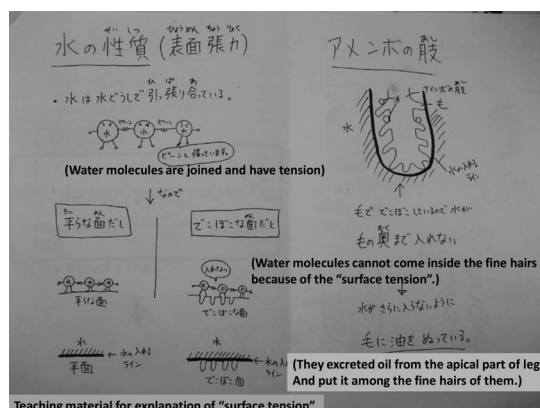 水の性質(表面張力)
せいしつ ひょうめんちょうりょく
・水は水どうしで引っ張り合っている。
ひ ぱ あ
ピーン ピーン
水 水 水
ピーンと張っています。
(Water molecules are joined and have tension)
↓なので
平らな面だと
たい めん
平らな面
水
←水の入れるライン
平面
でこぼこな面だと
入れない
でこぼこな面
水
←水の入れるライン
でこぼこ面
アメンボの肢
あし
アメンボの肢
毛
水
水の入れるライン
毛ででこぼこしているので水が
毛の奥まで入れない
おく
(Water molecules cannot come inside the fine hairs
because of the “surface tension”.)
水がさらに入らないように
毛に油をぬっている。
(They excreted oil from the apical part of leg
And put it among the fine hairs of them.)
Teaching material for explanation of “surface tension”